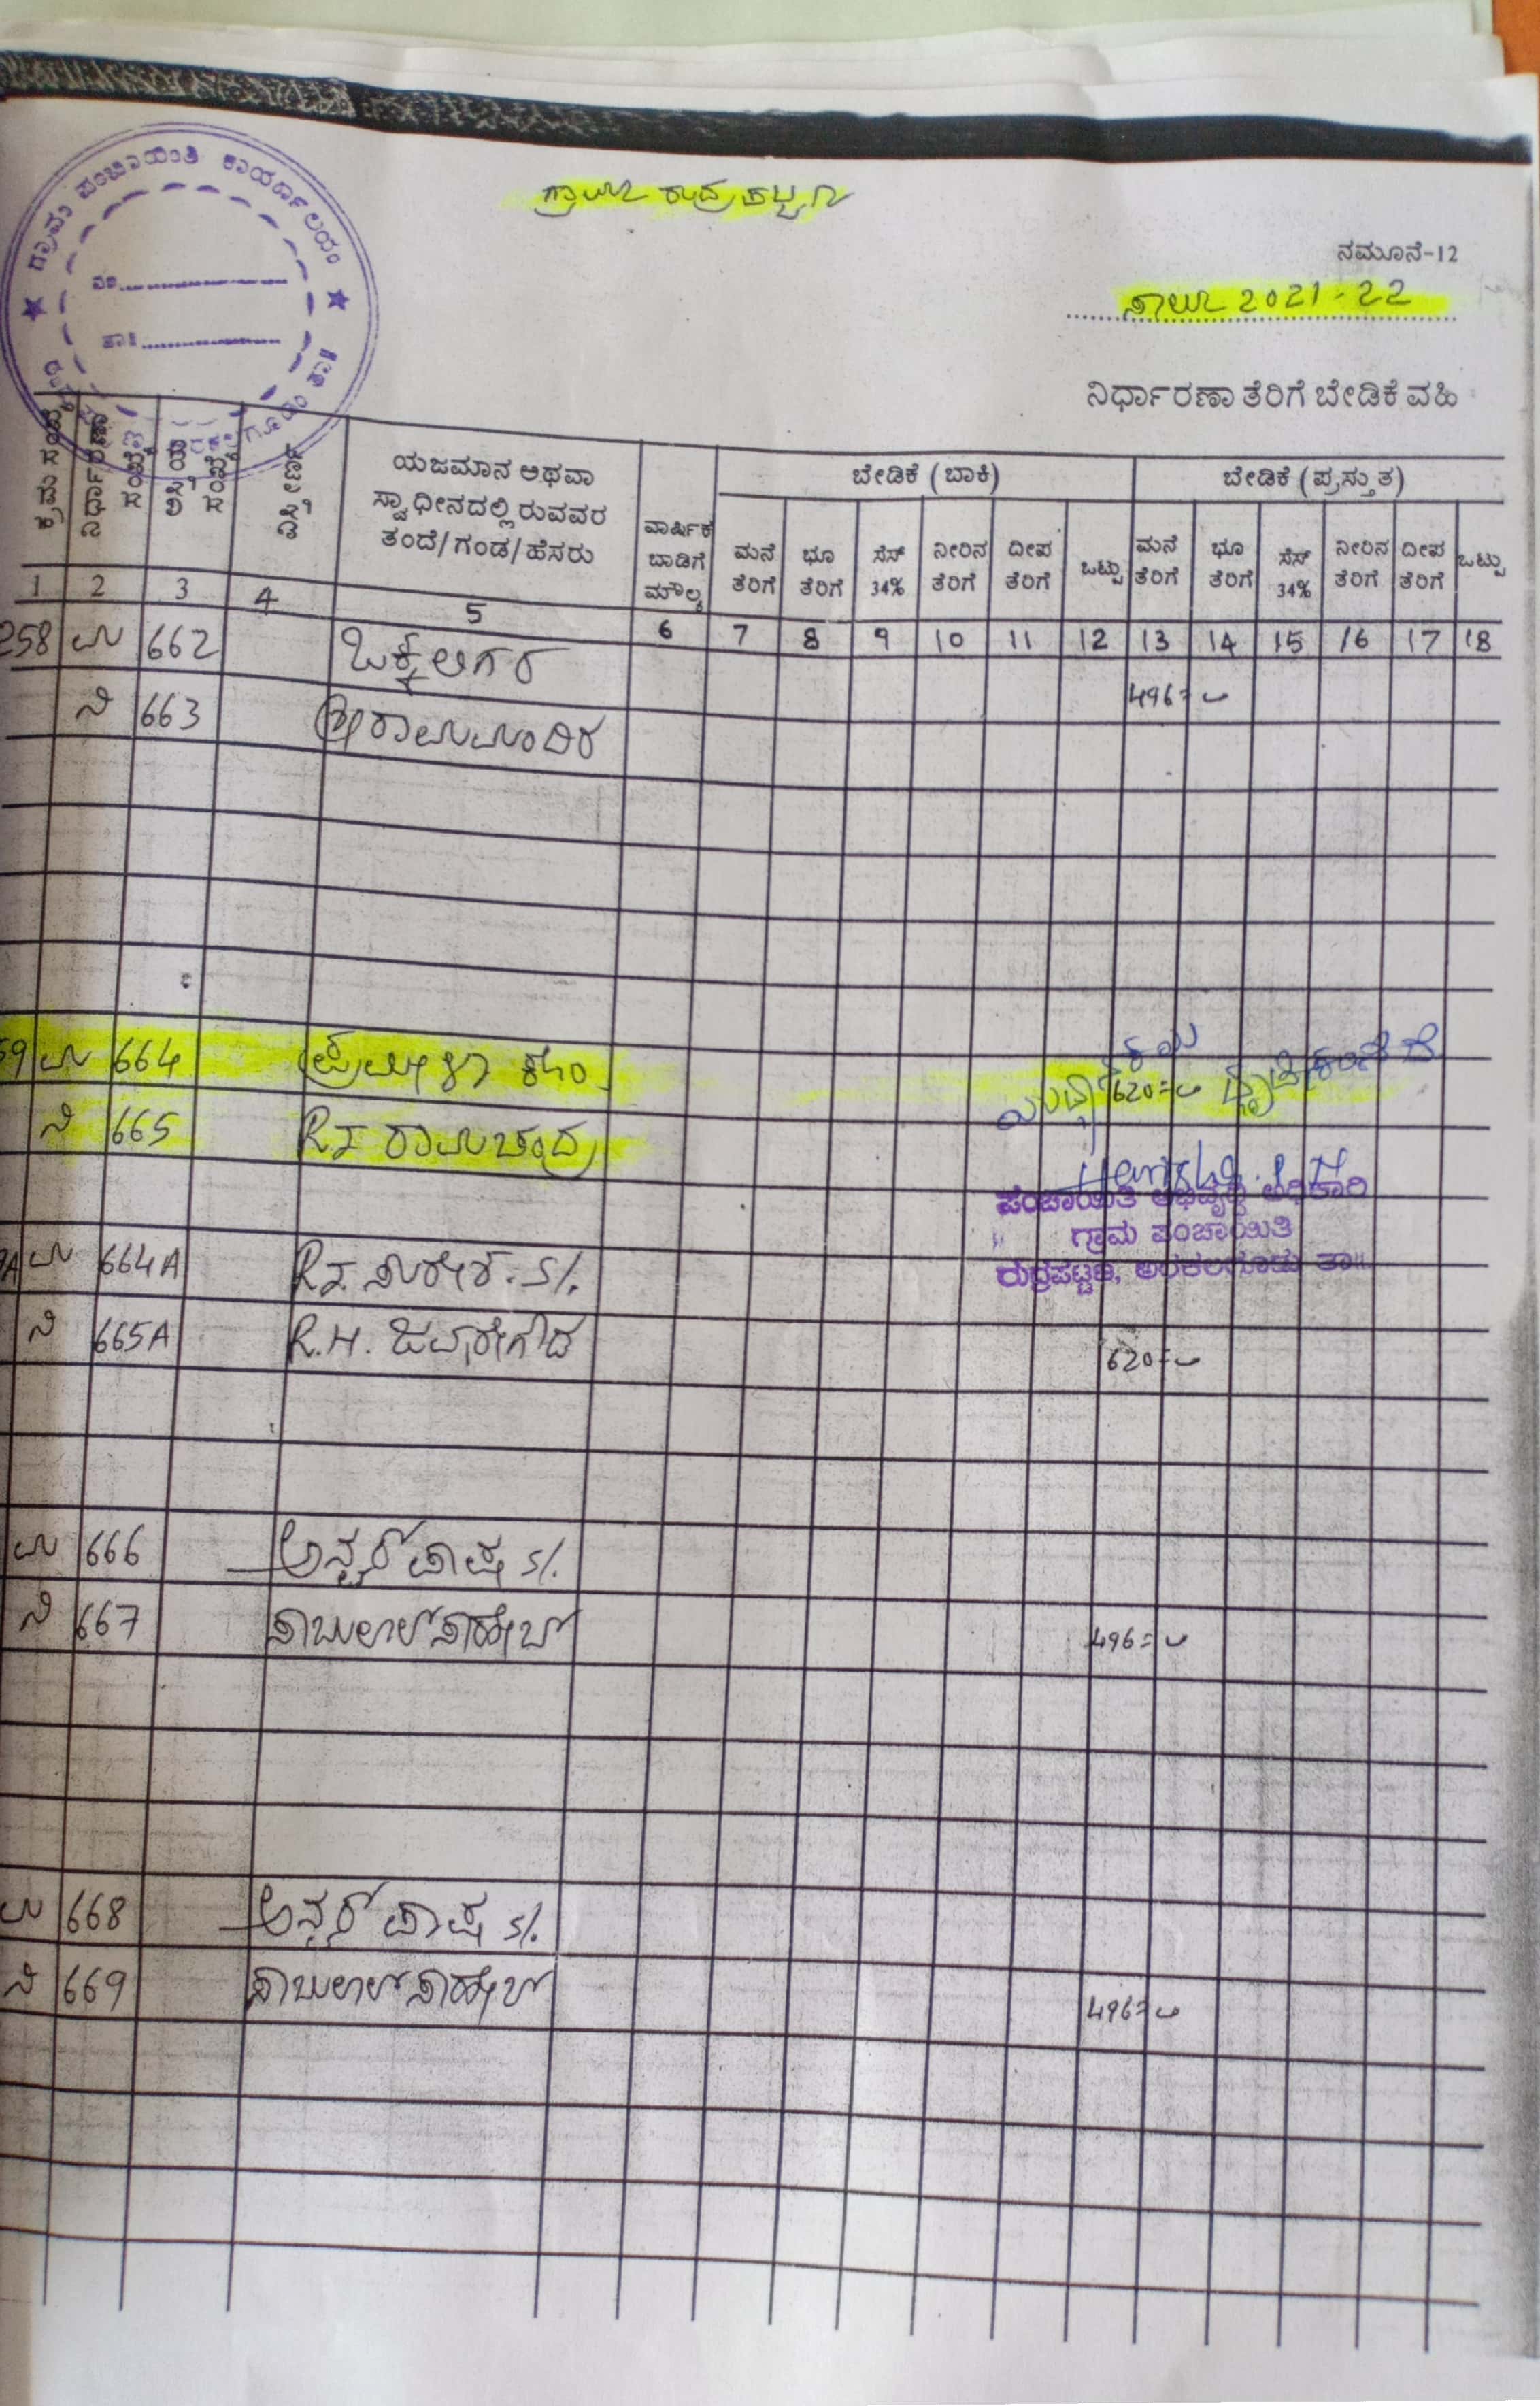 ಗ್ರಾಮ ಪಂಚಾಯಿತಿ ಕಾರ್ಯಾಲಯ
ನಂ
ತಾ॥
ಗ್ರಾಮ ರುದ್ರಪಟ್ಟಣ
ನಮೂನೆ-12
ಸಾಲು 2021-22
ನಿರ್ಧಾರಣಾ ತೆರಿಗೆ ಬೇಡಿಕೆ ವಹಿ
ಕ್ರಮ ಸಂಖ್ಯೆ ನಿರ್ಧಾರಣಾ ಸಂಖ್ಯೆ ಆಸ್ತಿಯ ಸಂಖ್ಯೆ ವಿಸ್ತೀರ್ಣ
ಯಜಮಾನ ಅಥವಾ
ಸ್ವಾಧೀನದಲ್ಲಿರುವವರ
ತಂದೆ/ಗಂಡ/ಹೆಸರು
ವಾರ್ಷಿಕ ಬಾಡಿಗೆ ಮೌಲ್ಯ
ಬೇಡಿಕೆ (ಬಾಕಿ) ಬೇಡಿಕೆ (ಪ್ರಸ್ತುತ)
ಮನೆ ತೆರಿಗೆ ಭೂ ತೆರಿಗೆ ಸೆಸ್ 34% ನೀರಿನ ತೆರಿಗೆ ದೀಪ ತೆರಿಗೆ ಒಟ್ಟು ಮನೆ ತೆರಿಗೆ ಭೂ ತೆರಿಗೆ ಸೆಸ್ 34% ನೀರಿನ ತೆರಿಗೆ ದೀಪ ತೆರಿಗೆ ಒಟ್ಟು
1 2 3 4 5 6 7 8 9 10 11 12 13 14 15 16 17 18
258 ಮ 662 ಒಕ್ಕಲಿಗರ
ನಿ 663 ಶ್ರೀರಾಮಮಂದಿರ 496=
59 ಮ 664 ಪ್ರಮೀಳಾ ಕೋಂ 620=
ನಿ 665 R.T ರಾಮಚಂದ್ರ
ಪಂಚಾಯಿತಿ ಅಭಿವೃದ್ಧಿ ಅಧಿಕಾರಿ
ಗ್ರಾಮ ಪಂಚಾಯಿತಿ
ರುದ್ರಪಟ್ಟಣ, ಅರಕಲಗೂಡು ತಾ॥
9A ಮ 664A R.T. ಸುರೇಶ. S/.
ನಿ 665A R.H. ಜವರೇಗೌಡ 620=
ಮ 666 ಅನ್ಸರ್ ಪಾಷ S/.
ನಿ 667 ಸಾಬುಲಾಲ್ ಸಾಹೇಬ್ 496=
ಮ 668 ಅನ್ಸರ್ ಪಾಷ S/.
ನಿ 669 ಸಾಬುಲಾಲ್ ಸಾಹೇಬ್ 496=